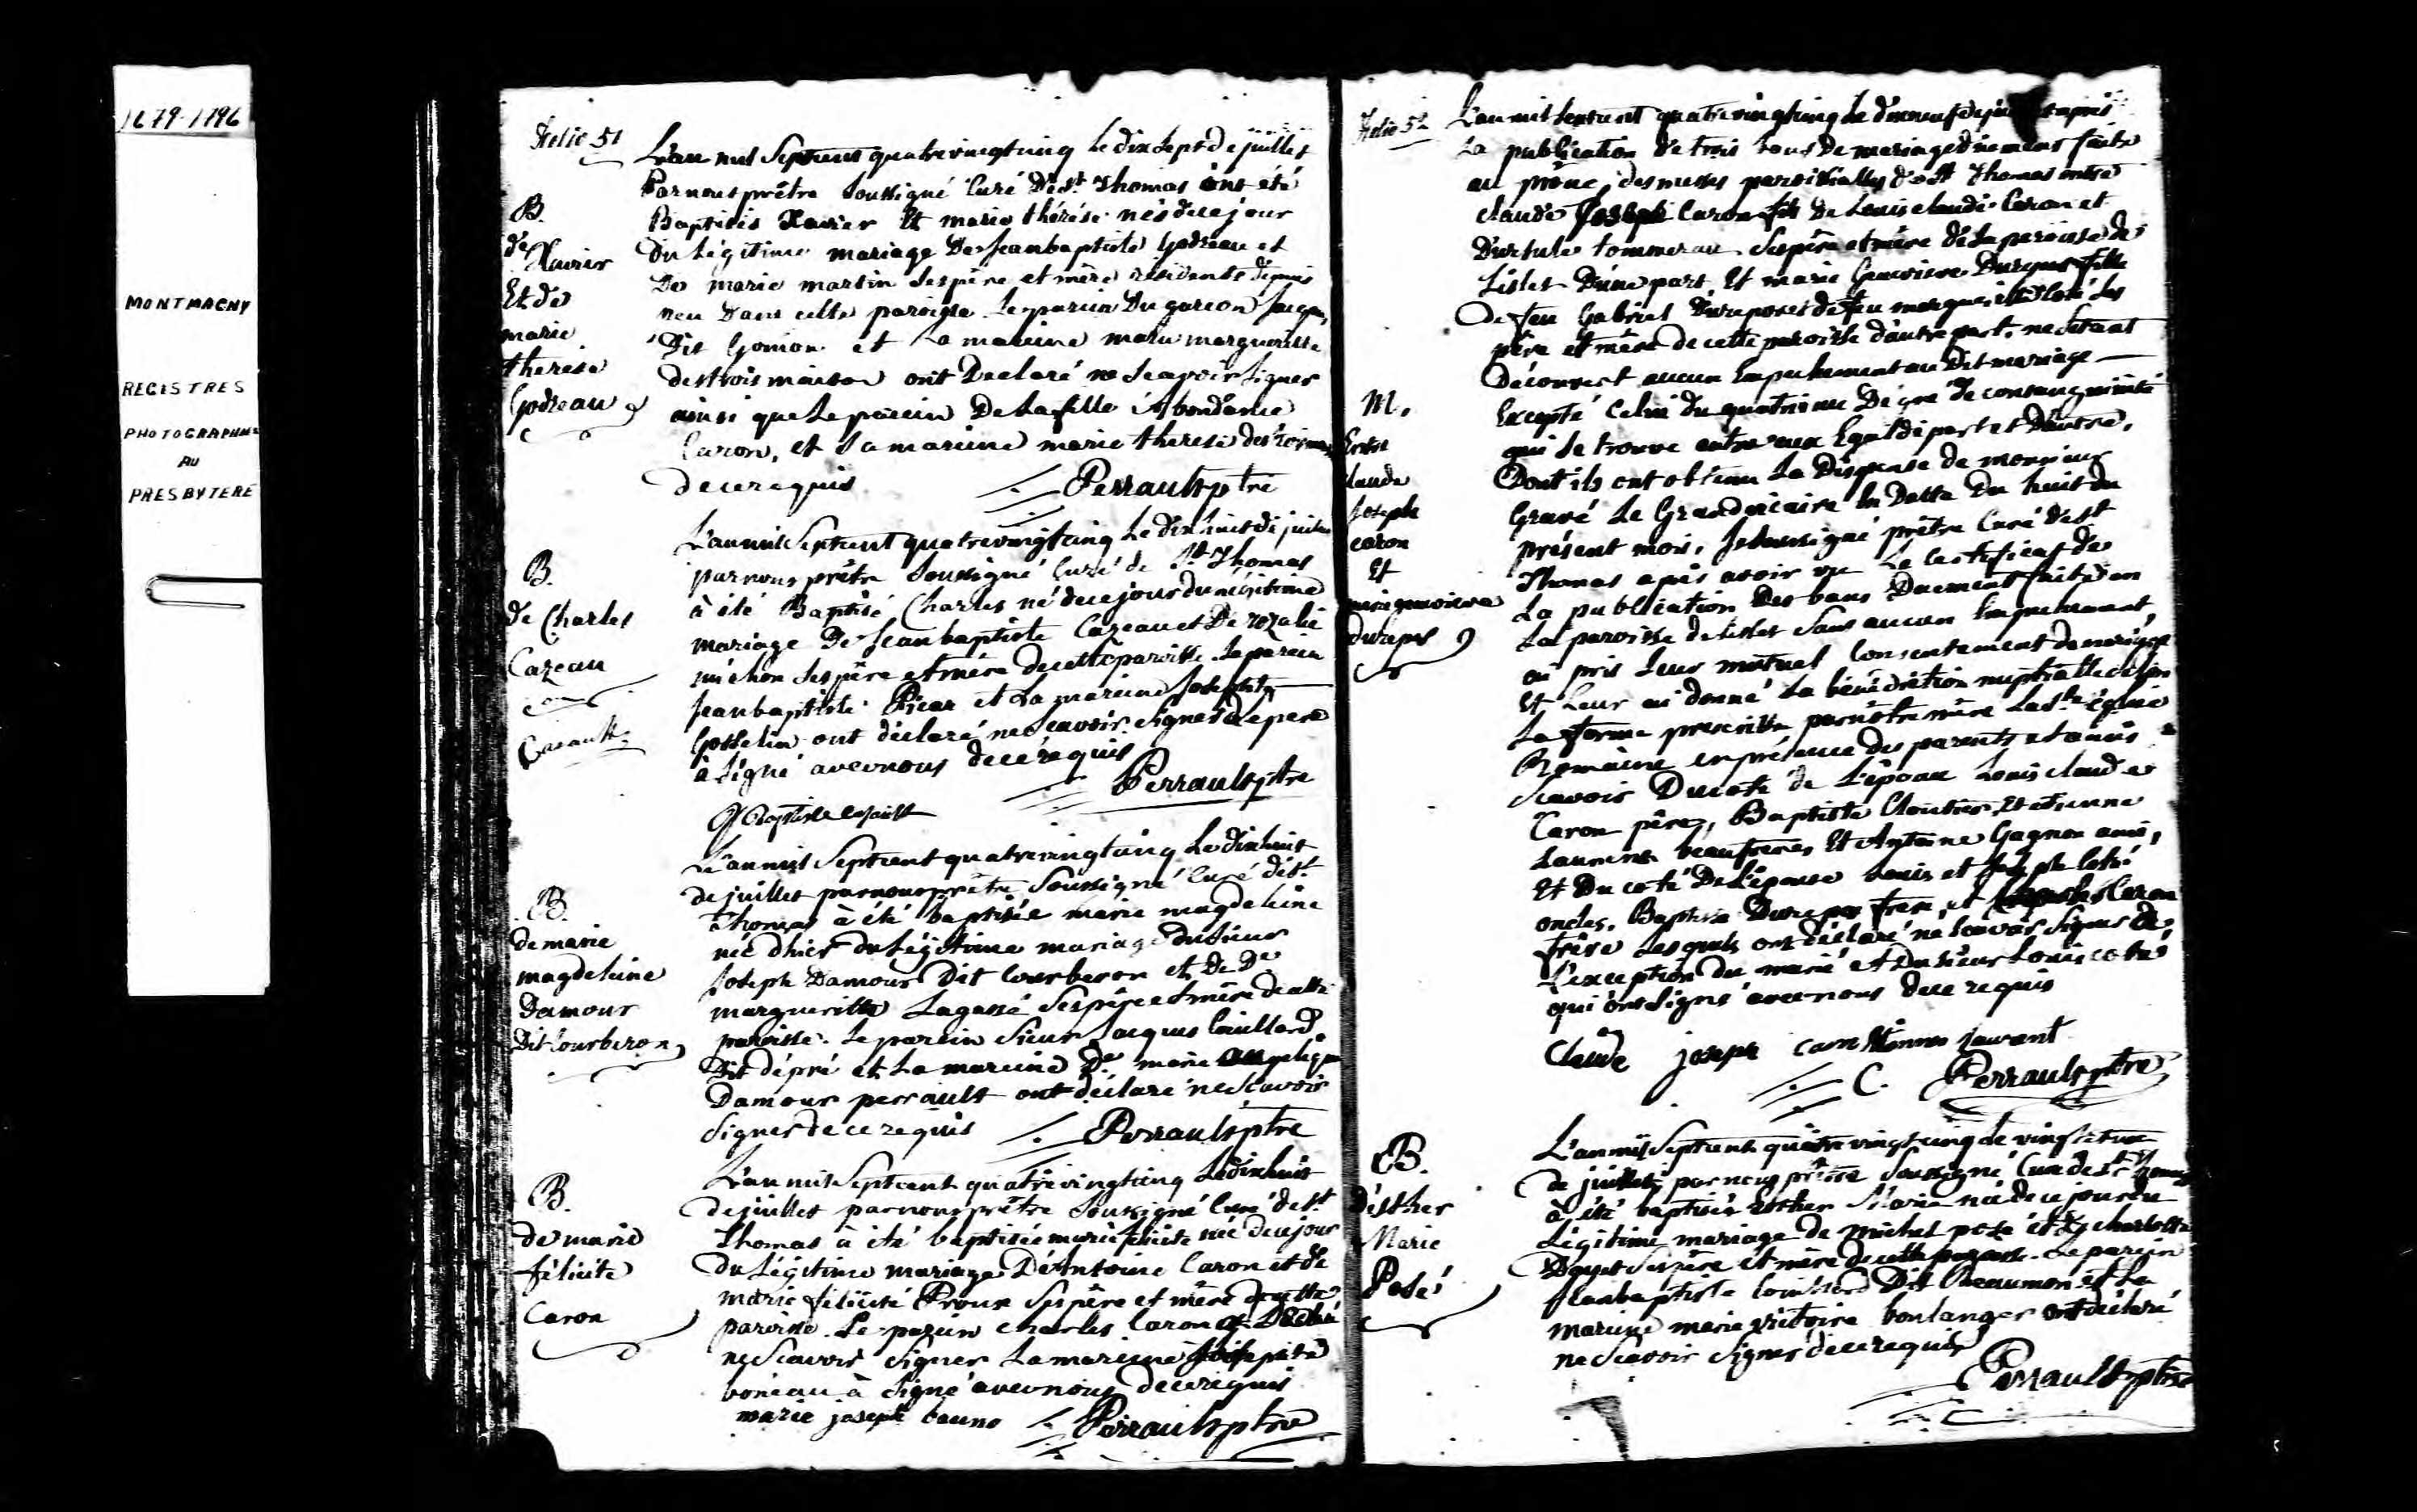 1679-1796
MONTMAGNY
REGISTRES
PHOTOGRAPHIÉ
AU
PRESBYTERE
folio 51
L'an mil Septcent quatrevingtcinq Le dix Sept de juillet
Par nous prêtre Soussigné Curé de St Thomas ont eté
Baptisés Xavier Et marie thérése nés de ce jour
Du Légitime mariage De Jean baptiste Godreau et
De marie martin Ses père et mère résidents depuis
peu Dans cette paroisse Le parein Du garcon
Dit Gomon et La mareine marie margueritte
destroismaison ont Declaré ne Scavoir Signer
ainsi que Le parein De La fille
Caron, et La mareine marie therese
de ce requis. Perrault ptre
B.
de Xavier
Et de
marie
therese
Godreau
L'an mil Septcent quatrevingtcinq Le dix huit de juillet
par nous prêtre Soussigné Curé de St Thomas
à été Baptisé Charles né de ce jour du légitime
mariage De Jean baptiste Cazeau et De rozalie
michon Ses père et mère de cette paroisse. Le parein
Jean baptiste Picar et La mareine Josephte
Gosselin ont déclaré ne Scavoir Signer Le pere
à Signé avec nous de ce requis
Perrault ptre
B.
de Charles
Cazeau
Casault
J Baptiste casault
L'an mil Septcent quatrevingtcinq Le dix huit
de juillet par nous prêtre Soussigné Curé de St
Thomas à été baptisée marie magdeleine
née d'hier du Légitime mariage du Sieur
Joseph Damour Dit Courberon et De De
margueritte Lagassé Ses père et mère de cette
paroisse. Le parein Sieur Jacques Couillard
Dit dépré et La mareine De marie angelique
Damour perrault ont déclaré ne Scavoir
Signer de ce requis Perrault ptre
B.
de marie
magdeleine
Damour
Dit Courberon
L'an mil Septcent quatrevingtcinq Le dix huit
de juillet par nous prêtre Soussigné Curé de St
Thomas à été baptisée marie félicité née de ce jour
Du Légitime mariage D'Antoine Caron et de
marie félicité Proux Ses père et mère de cette
paroisse. Le parein Charles Caron a Déclaré
ne Scavoir Signer La mareine Josephte
boneau à Signé avec nous de ce requis
marie joseph bauno Perrault ptre
B.
de marie
félicité
Caron
folio 52
L'an mil Septcent quatrevingtcinq Le dixneuf de juillet après
La publication de trois bans De mariage dûement faite
au prône des messes paroissialles de St Thomas entre
claude Joseph Caron fils De Louis claude Caron et
D'urtule Commerau Ses père et mère De La paroisse de
Lislet D'une part, Et marie Genevieve Durepos fille
De feu Gabriel Durepos et De feu margueritte Coté Ses
père et mère de cette paroisse d'autre part. ne S'etant
Découvert aucun Empechement au Dit mariage
Excepté Celui du quatrieme Dégré de consanguinité
qui Se trouve entre eux Egal de part et D'autre,
Dont ils ont obtenu La Dispense de monsieur
Gravé Le Grand vicaire En Datte Du huit du
présent mois, Je Soussigné prêtre Curé de St
Thomas après avoir vu Le Certificat de
La publication Des bans Duement faite en
La paroisse de Lislet Sans aucun Empechement,
ai pris Leur mutuel Consentement de mariage
Et Leur ai donné La bénédiction nuptialle Selon
La forme prescritte par nôtre mère La Ste église
Romaine en présence des parents et amis
Scavoir Du coté de L'époux Louis claude
Caron père, Baptiste Cloutier, Et etienne
Laurent beaufreres Et Antoine Gagnon ami,
Et Du coté De L'épouse Louis et Joseph Coté
oncles, Baptiste Durepos frere, et Caron
frère Lesquels ont déclaré ne Scavoir Signer à
L'exception du marié et Du Sieur Louis coté
qui ont Signé avec nous de ce requis
Claude joseph caron Etienne laurent
C. Perrault ptre
M.
Entre
claude
Joseph
caron
Et
marie genevieve
durepos
L'an mil Septcent quatrevingtcinq Le vingt et un
de juillet par nous prêtre Soussigné Curé de St Thomas
à été baptisée Esther Marie née de ce jour du
Légitime mariage de michel posé et De charlotte
Doyet Ses père et mère de cette paroisse. Le parein
Jean baptiste Couillard Dit Beaumon et La
mareine marie victoire boulanger ont déclaré
ne Scavoir Signer de ce requis
Perrault ptre
B.
d'esther
Marie
Posé